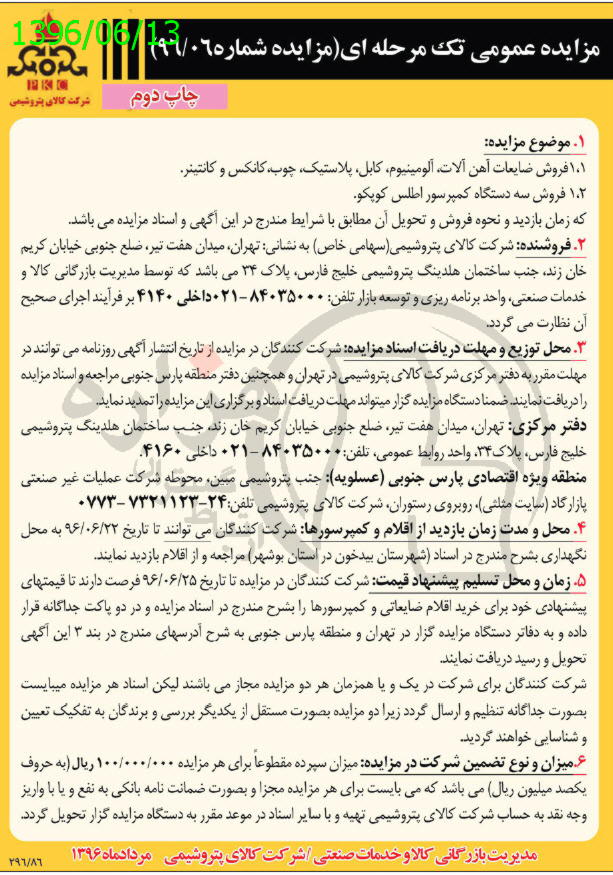 1396/06/13
مزایده عمومی تک مرحله ای(مزایده شماره۹۶/۰۶)
PKC
شرکت کالای پتروشیمی
چاپ دوم
۱. موضوع مزایده:
۱.۱فروش ضایعات آهن آلات، آلومینیوم، کابل، پلاستیک، چوب،کانکس و کانتینر.
۱.۲ فروش سه دستگاه کمپرسور اطلس کوپکو.
که زمان بازدید و نحوه فروش و تحویل آن مطابق با شرایط مندرج در این آگهی و اسناد مزایده می باشد.
۲. فروشنده: شرکت کالای پتروشیمی(سهامی خاص) به نشانی: تهران، میدان هفت تیر، ضلع جنوبی خیابان کریم
خان زند، جنب ساختمان هلدینگ پتروشیمی خلیج فارس، پلاک ۳۴ می باشد که توسط مدیریت بازرگانی کالا و
خدمات صنعتی، واحد برنامه ریزی و توسعه بازار تلفن: ۸۴۰۳۵۰۰۰ -۰۲۱داخلی ۴۱۴۰ بر فرآیند اجرای صحیح
آن نظارت می گردد.
۳. محل توزیع و مهلت دریافت اسناد مزایده: شرکت کنندگان در مزایده از تاریخ انتشار آگهی روزنامه می توانند در
مهلت مقرر به دفتر مرکزی شرکت کالای پتروشیمی در تهران و همچنین دفتر منطقه پارس جنوبی مراجعه و اسناد مزایده
را دریافت نمایند. ضمنا دستگاه مزایده گزار میتواند مهلت دریافت اسناد و برگزاری این مزایده را تمدید نماید.
دفتر مرکزی: تهران، میدان هفت تیر، ضلع جنوبی خیابان کریم خان زند، جنب ساختمان هلدینگ پتروشیمی
خلیج فارس، پلاک۳۴، واحد روابط عمومی، تلفن: ۸۴۰۳۵۰۰۰ -۰۲۱ داخلی ۴۱۶۰.
منطقه ویژه اقتصادی پارس جنوبی (عسلویه): جنب پتروشیمی مبین، محوطه شرکت عملیات غیر صنعتی
پازارگاد (سایت مثلثی)، روبروی رستوران، شرکت کالای پتروشیمی تلفن:۲۴-۷۳۲۱۱۲۳ -۰۷۷۳
۴. محل و مدت زمان بازدید از اقلام و کمپرسورها: شرکت کنندگان می توانند تا تاریخ ۹۶/۰۶/۲۲ به محل
نگهداری بشرح مندرج در اسناد (شهرستان بیدخون در استان بوشهر) مراجعه و از اقلام بازدید نمایند.
۵. زمان و محل تسلیم پیشنهاد قیمت: شرکت کنندگان در مزایده تا تاریخ ۹۶/۰۶/۲۵ فرصت دارند تا قیمتهای
پیشنهادی خود برای خرید اقلام ضایعاتی و کمپرسورها را بشرح مندرج در اسناد مزایده و در دو پاکت جداگانه قرار
داده و به دفاتر دستگاه مزایده گزار در تهران و منطقه پارس جنوبی به شرح آدرسهای مندرج در بند ۳ این آگهی
تحویل و رسید دریافت نمایند.
شرکت کنندگان برای شرکت در یک و یا همزمان هر دو مزایده مجاز می باشند لیکن اسناد هر مزایده میبایست
بصورت جداگانه تنظیم و ارسال گردد زیرا دو مزایده بصورت مستقل از یکدیگر بررسی و برندگان به تفکیک تعیین
و شناسایی خواهند گردید.
۶.میزان و نوع تضمین شرکت در مزایده: میزان سپرده مقطوعاً برای هر مزایده ۱۰۰/۰۰۰/۰۰۰ ریال (به حروف
یکصد میلیون ریال) می باشد که می بایست برای هر مزایده مجزا و بصورت ضمانت نامه بانکی به نفع و یا با واریز
وجه نقد به حساب شرکت کالای پتروشیمی تهیه و با سایر اسناد در موعد مقرر به دستگاه مزایده گزار تحویل گردد.
مدیریت بازرگانی کالا و خدمات صنعتی / شرکت کالای پتروشیمی مردادماه ۱۳۹۶
۲۹۶/۸۶